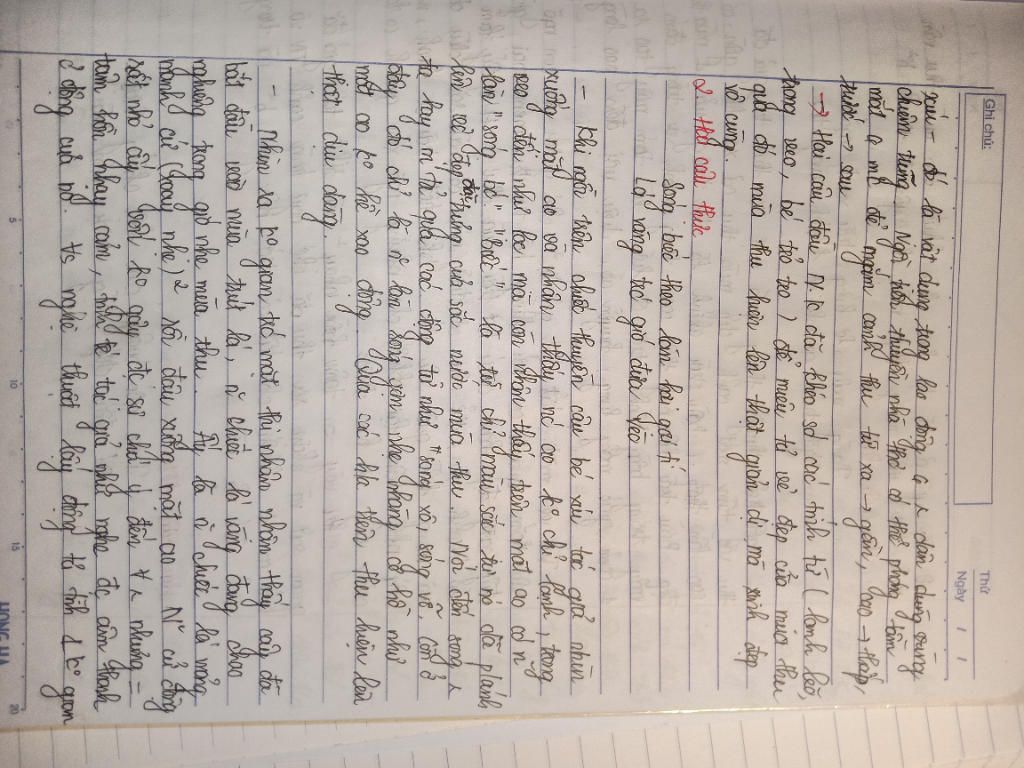 Ghi chú:
Thứ
Ngày / /
xíu - đó là vật dụng trong lao động q ẻ dân dùng vùng
chiêm trũng. Ngồi trên thuyền nhà thơ có thể phóng tầm
mắt q mk để ngắm cảnh thu từ xa → gần, cao → thấp,
trước → sau
→ Hai câu đầu N.K đã khéo sd các tính từ (lạnh lẽo,
trong veo, bé tẻo teo) để miêu tả vẻ đẹp của mùa thu
qua đó mùa thu hiện lên thật giản dị mà xinh đẹp
vô cùng.
2. Hai câu thực
Sóng biếc theo làn hơi gợn tí
Lá vàng trước gió đưa vèo
- Khi ngồi trên chiếc thuyền câu bé xíu tác giả nhìn
xuống mặt ao và nhận thấy nó ao ko chỉ lạnh, trong
veo đến như lọc mà còn nhìn thấy trên mặt ao có n~
làn "sóng biếc" "biếc" là từ chỉ màu sắc từ nó đã p/ánh
lên vẻ đẹp đặc trưng của sắc nước mùa thu. Nói đến sóng ẻ
ta hay m.tả qua các động từ như "sóng xô, sóng vỗ, còn ở
đây đó chỉ là n~ làn sóng gợn nhẹ phẳng có hồ như
mặt ao ko hề xao động. Qua các h/a trên thu hiện lên
thật dịu dàng.
- Nhìn xa ko gian trước mắt thi nhân nhận thấy cây đã
bắt đầu vào mùa trút lá, n~ chiếc lá vàng đang chao
nghiêng trong gió nhẹ mùa thu. Ấy là n~ chiếc lá mỏng
manh cứ (xoay nhẹ) rồi đậu xuống mặt ao N~ cử động
rất nhỏ ấy vốn ko gây đc sự chú ý đến ẻ nhưng =
tâm hồn nhạy cảm, tinh tế tác giả nghe đc âm thanh
ở động của nó. t/g nghệ thuật lấy động tả tĩnh 1 ko gian
0 5 10 15 20
HỒNG HÀ